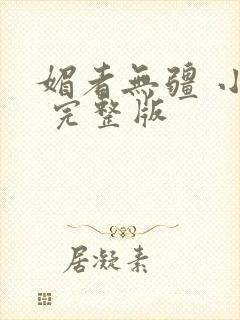 媚者無疆 小
完整版
居凝素